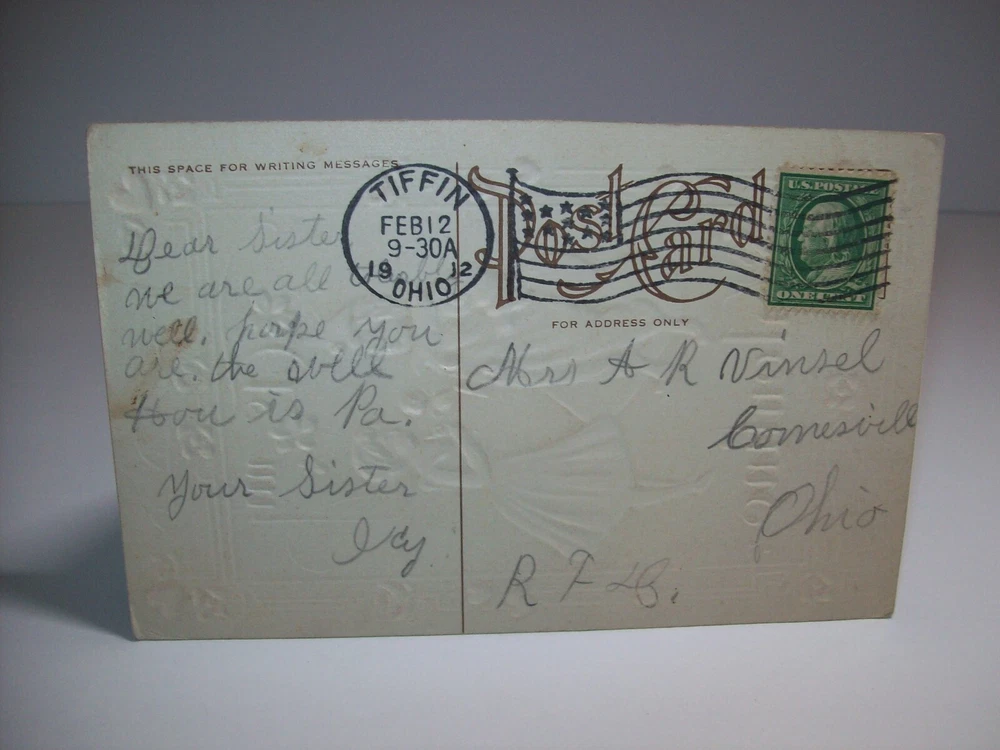 THIS SPACE FOR WRITING MESSAGES
TIFFIN
FEB 12
9-30A
19 12
OHIO
Post Card
U.S. POSTAGE
ONE CENT
FOR ADDRESS ONLY
Dear Sister
we are all
well. you
are. the well
How is Pa.
Your Sister
Mrs A R Vinsel
Ohio
R F D.